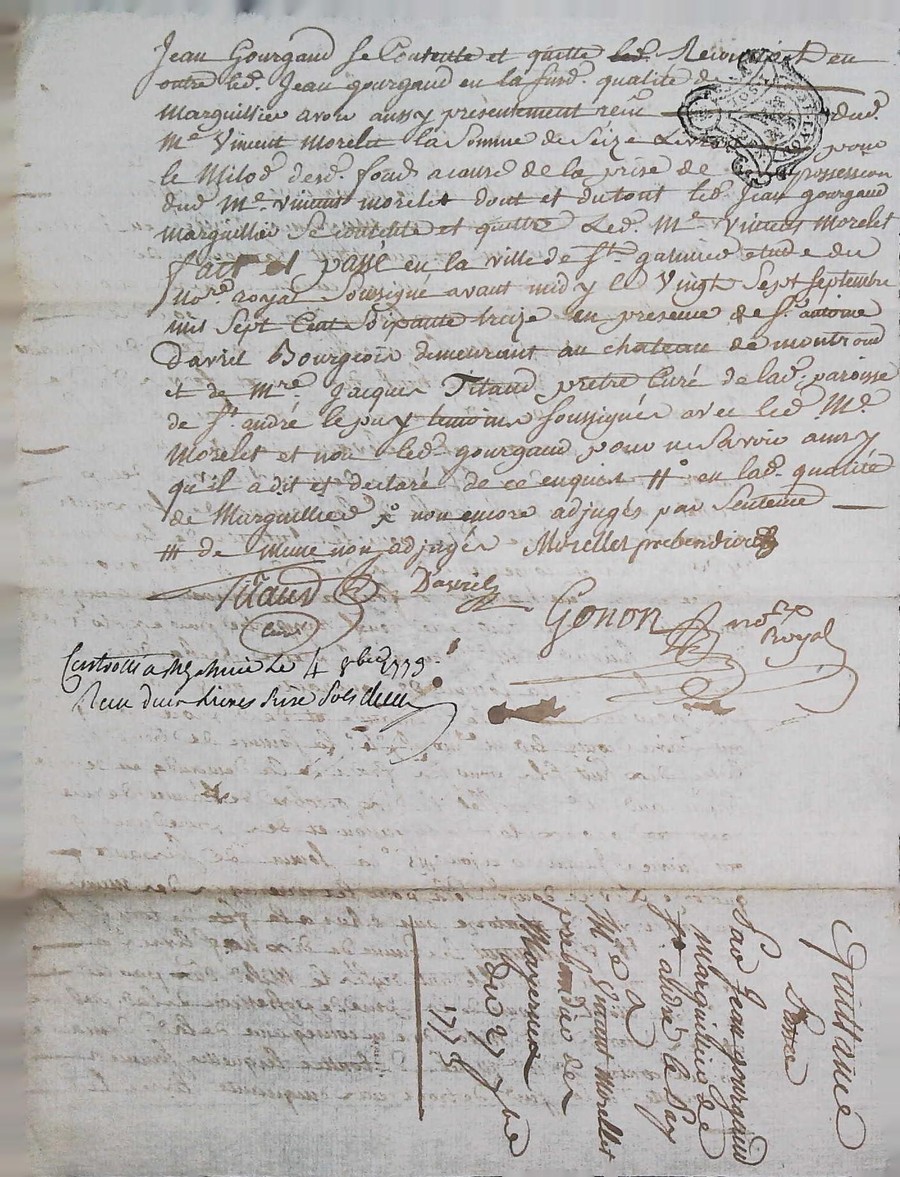 Jean Gourgaud se Contente et quitte led.
outre led. Jean gourgaud en la susd. qualité de
Marguillier avoir aussy presentement reçu dud.
Me. Vincent Morelet la Somme de Seize Livres pour
le Milod desd. fonds acause de la prise de possession
dud. Me. Vincent morelet dont et du tout led. Jean gourgaud
marguillier Se contente et quitte Led. Me. Vincent Morelet
fait et passé en la ville de St. galmier etude du
Nore. royal Soussigné avant midy le Vingt Sept Septembre
mil Sept Cent Soixante treize en presence de Sr. antoine
Davril Bourgeois demeurant au chateau de montrond
et de Mre. Jacques Titaud pretre Curé de lad. paroisse
de St. andré le puy temoins Soussignés avec led. Me.
Morelet et non led. gourgaud pour ne Savoir ainsy
qu'il a dit et declaré de ce enquis # en lad. qualité
de Marguillier x non encore adjugés par Sentence
# de meme non adjugés Morellet prebendier
Titaud Davril
Curé
Gonon nore.
Royal
Controllé a St galmier Le 4 8bre 1773
Reçu
Quittance
Passée
Par Jean gourgaud
marguillier de
St. andré le Puy
A
Mre Vincent morellet
prebendier des
Mayeneux
Du 27 7bre
1773